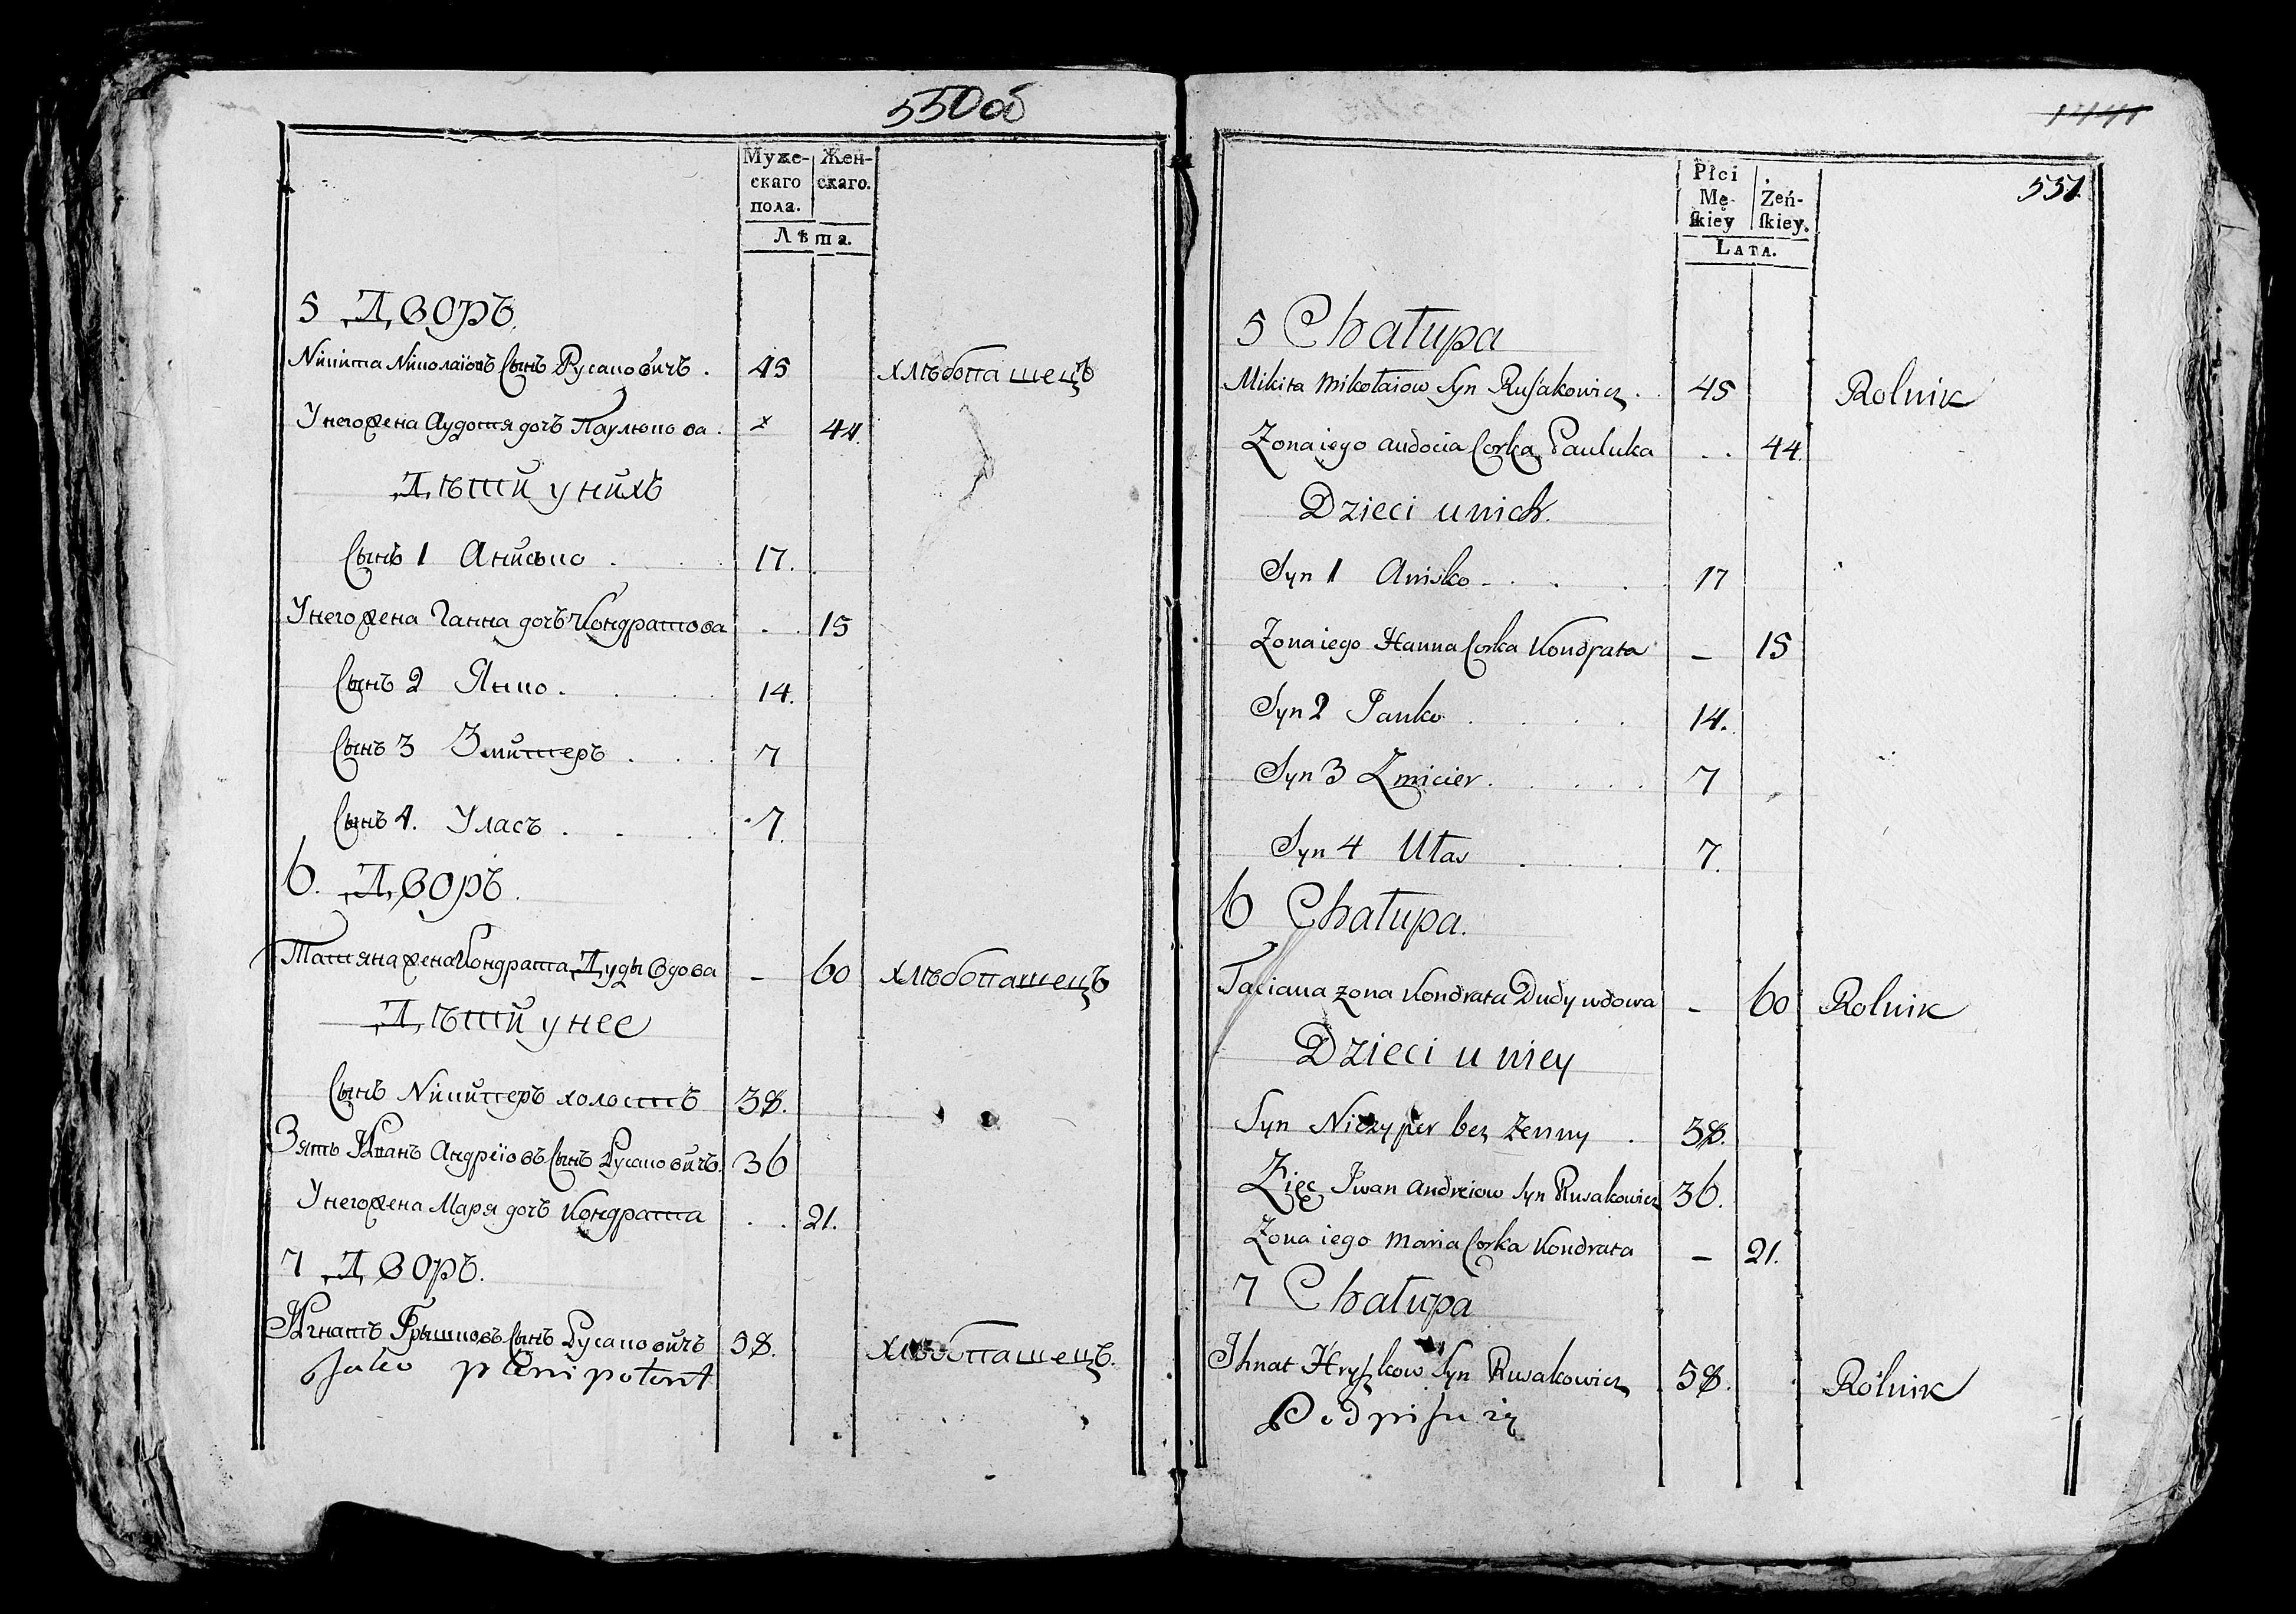 550 об
Муже- Жен-
скаго скаго.
пола.
Лѣта.
5 Дворъ.
Никита Николаіовъ Сынъ Русаковичъ. 45 хлѣбопашецъ
У него жена Аудотя дочь Паулюкова. 44.
Дѣти у нихъ
Сынъ 1 Анисько . . 17.
У него жена Ганна дочь Кондратова . . 15
Сынъ 2 Янко. . . . 14.
Сынъ 3 Змитеръ . . . 7
Сынъ 4. Уласъ . . . 7.
6. Дворъ.
Татяна жена Кондрата Дуды вдова – 60 хлѣбопашецъ
Дѣти у нее
Сынъ Никиперъ холостъ 38.
Зять Иванъ Андреіовъ Сынъ Русаковичъ. 36
У него жена Маря дочь Кондрата . . 21.
7 Дворъ.
Игнатъ Грышковъ Сынъ Русаковичъ 58. Хлѣбопашецъ.
Jako plenipotent
1441
551.
Płci
Mę- Żeń-
ſkiey ſkiey.
LATA.
5 Chałupa
Mikita Mikołaiow Syn Rusakowicz. 45 Rolnik
Zona iego Audocia Corka Pauluka . . 44.
Dzieci u nich.
Syn 1 Anisko - . . . 17
Zona iego Hanna Corka Kondrata – 15
Syn 2 Janko . . . . 14.
Syn 3 Zmicier. . . . . 7
Syn 4 Ułas . . . 7.
6 Chałupa.
Taciana zona Kondrata Dudy wdowa – 60 Rolnik
Dzieci u niey
Syn Niczyper bez zenny . 38.
Zięc Iwan Andreiow Syn Rusakowicz 36.
Zona iego Maria Corka Kondrata – 21.
7 Chałupa
Ihnat Hryszkow Syn Rusakowicz 58. Rolnik
Podpisuię